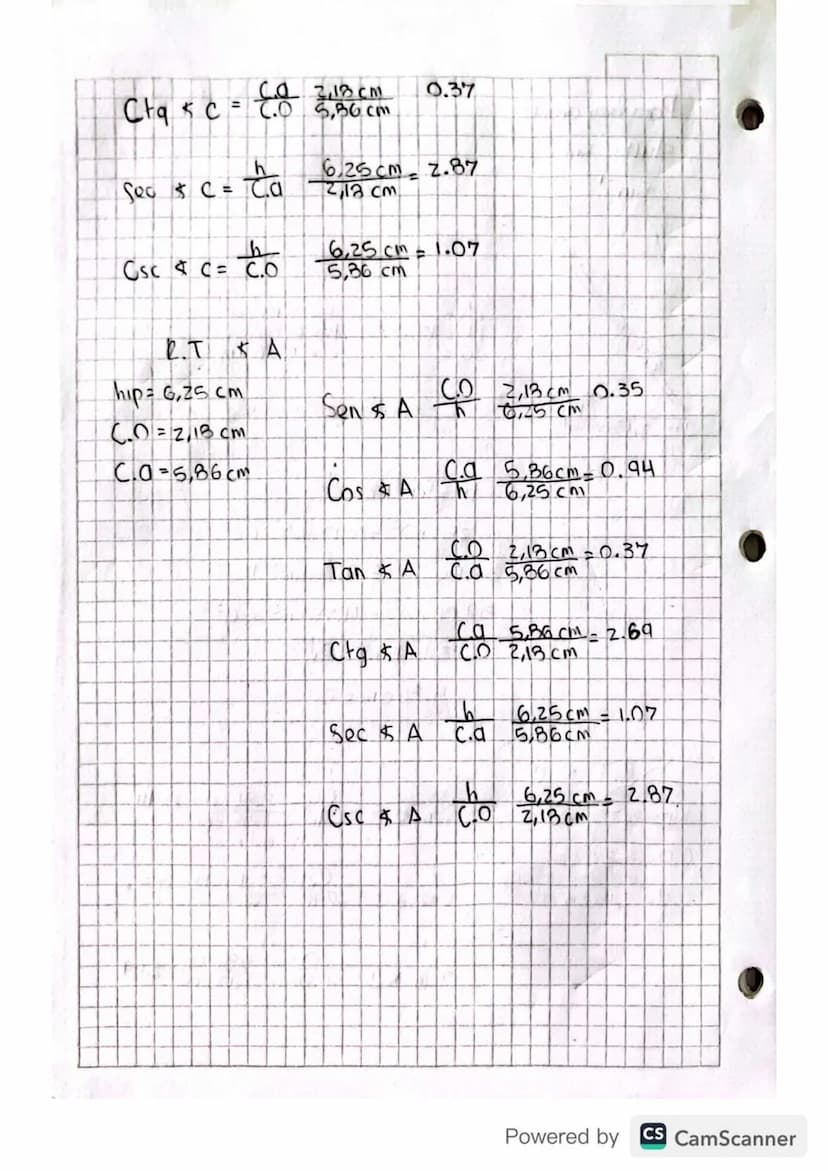 Ctg ∢ C = C.a/C.O 2,18 cm/5,86 cm 0.37
Sec ∢ C = h/C.a 6,25 cm/2,18 cm = 2.87
Csc ∢ C = h/C.O 6,25 cm/5,86 cm = 1.07
R.T ∢ A
hip = 6,25 cm
C.O = 2,18 cm
C.a = 5,86 cm
Sen ∢ A C.O/h 2,18 cm/6,25 cm 0.35
Cos ∢ A C.a/h 5,86 cm/6,25 cm = 0.94
Tan ∢ A C.O/C.a 2,18 cm/5,86 cm = 0.37
Ctg ∢ A C.a/C.O 5,86 cm/2,18 cm = 2.69
Sec ∢ A h/C.a 6,25 cm/5,86 cm = 1.07
Csc ∢ A h/C.O 6,25 cm/2,18 cm = 2.87
Powered by CS CamScanner